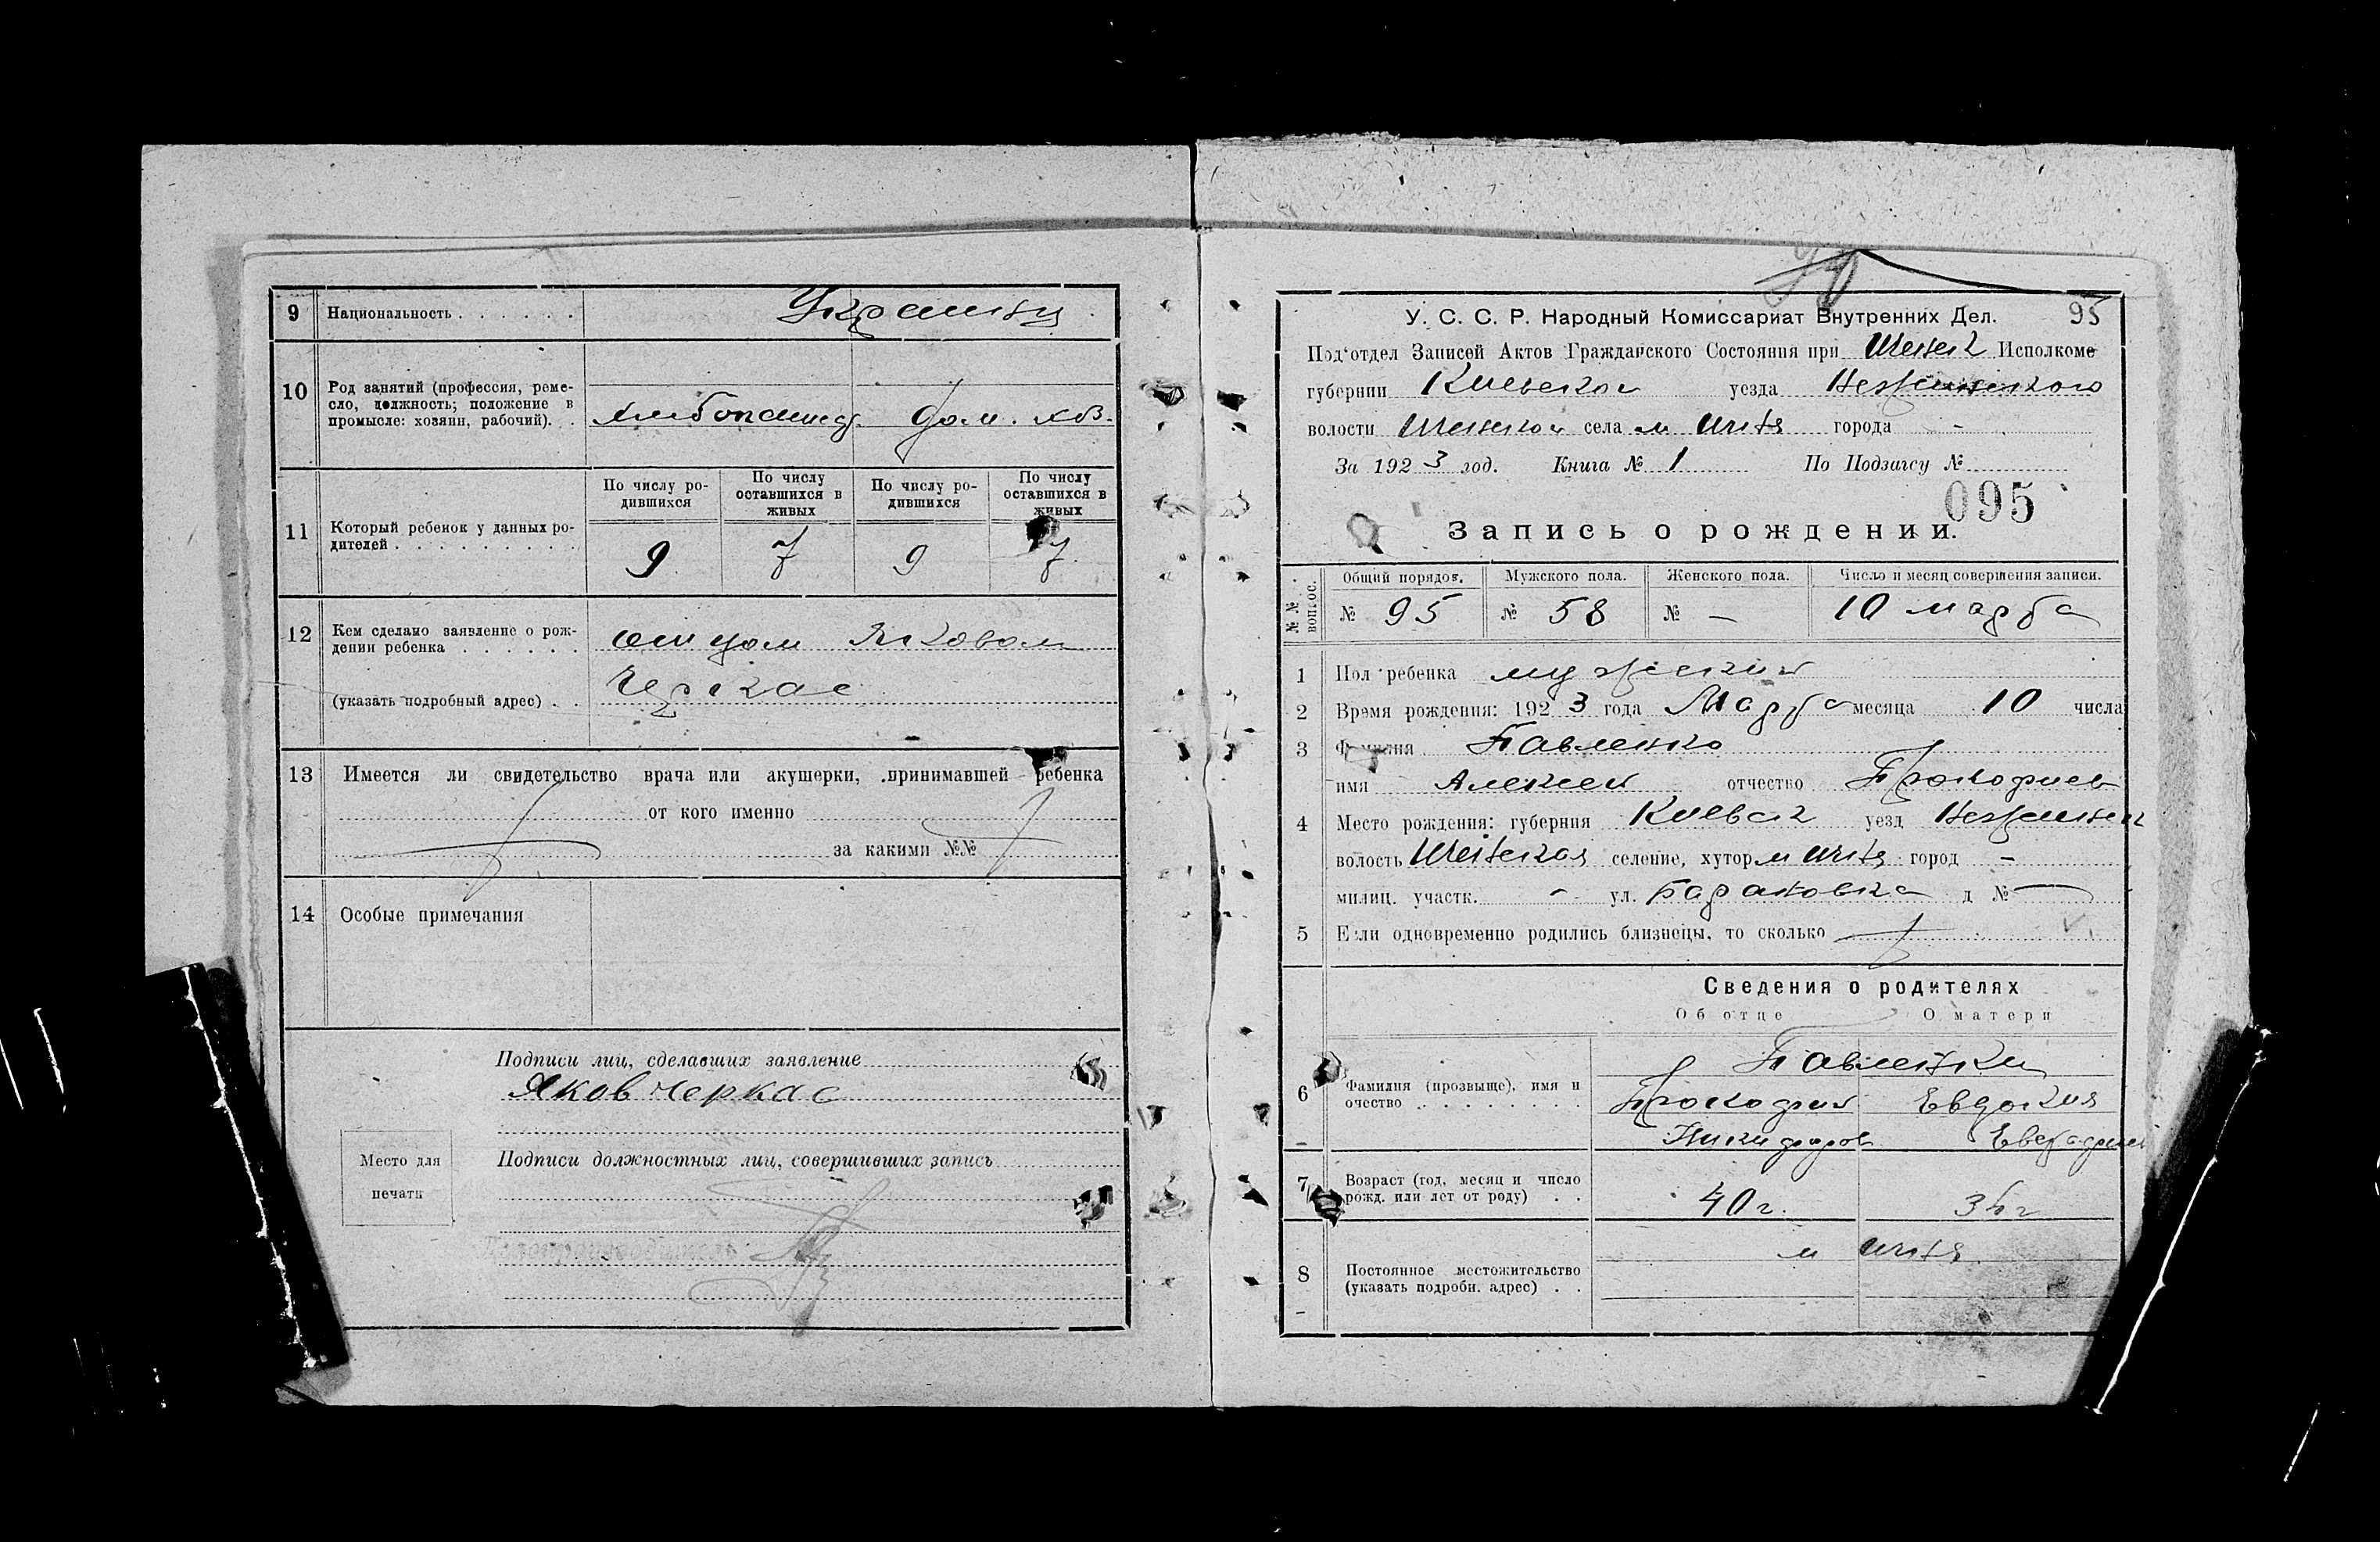 9 Национальность . . . . . . Украинцы
10 Род занятий (профессия, реме-
сло, должность; положение в
промысле: хозяин, рабочий). . Хлебопашец. дом. хоз.
По числу ро-
дившихся
По числу
оставшихся в
живых
По числу ро-
дившихся
По числу
оставшихся в
живых
11 Который ребенок у данных ро-
дителей . . . . . . . . . 9 7 9 7
12 Кем сделано заявление о рож-
дении ребенка . . . . . . отцом Яковом
(указать подробный адрес) . . Черкас
13 Имеется ли свидетельство врача или акушерки, принимавшей ребенка
от кого именно
за какими №№
14 Особые примечания
Подписи лиц, сделавших заявление
Яков Черкас
Место для
печати
Подписи должностных лиц, совершивших запись
95
У. С. С. Р. Народный Комиссариат Внутренних Дел.
Под'отдел Записей Актов Гражданского Состояния при Исполкоме
губернии Киевской уезда
волости села м города -
За 1923 год. Книга № 1 По Подзагсу №
095
Запись о рождении.
№ №
вопрос.
Общий порядов. Мужского пола. Женского пола. Число и месяц совершения записи.
№ 95 № 58 № - 10 марта
1 Пол ребенка мужеский
2 Время рождения: 1923 года Марта месяца 10 числа
3 Фамилия Павленко
имя Алексей отчество Прокофиев
4 Место рождения: губерния Киевск уезд
волость селение, хутор м город -
милиц. участк. - ул. д №
5 Если одновременно родились близнецы, то сколько
Сведения о родителях
Об отце О матери
Павленки
6 Фамилия (прозвище), имя и
очество . . . . . . . . Прокофий Евдокия
Никифоров
7 Возраст (год, месяц и число
рожд. или лет от роду) . . 40 г.
м
8 Постоянное местожительство
(указать подробн. адрес) . .